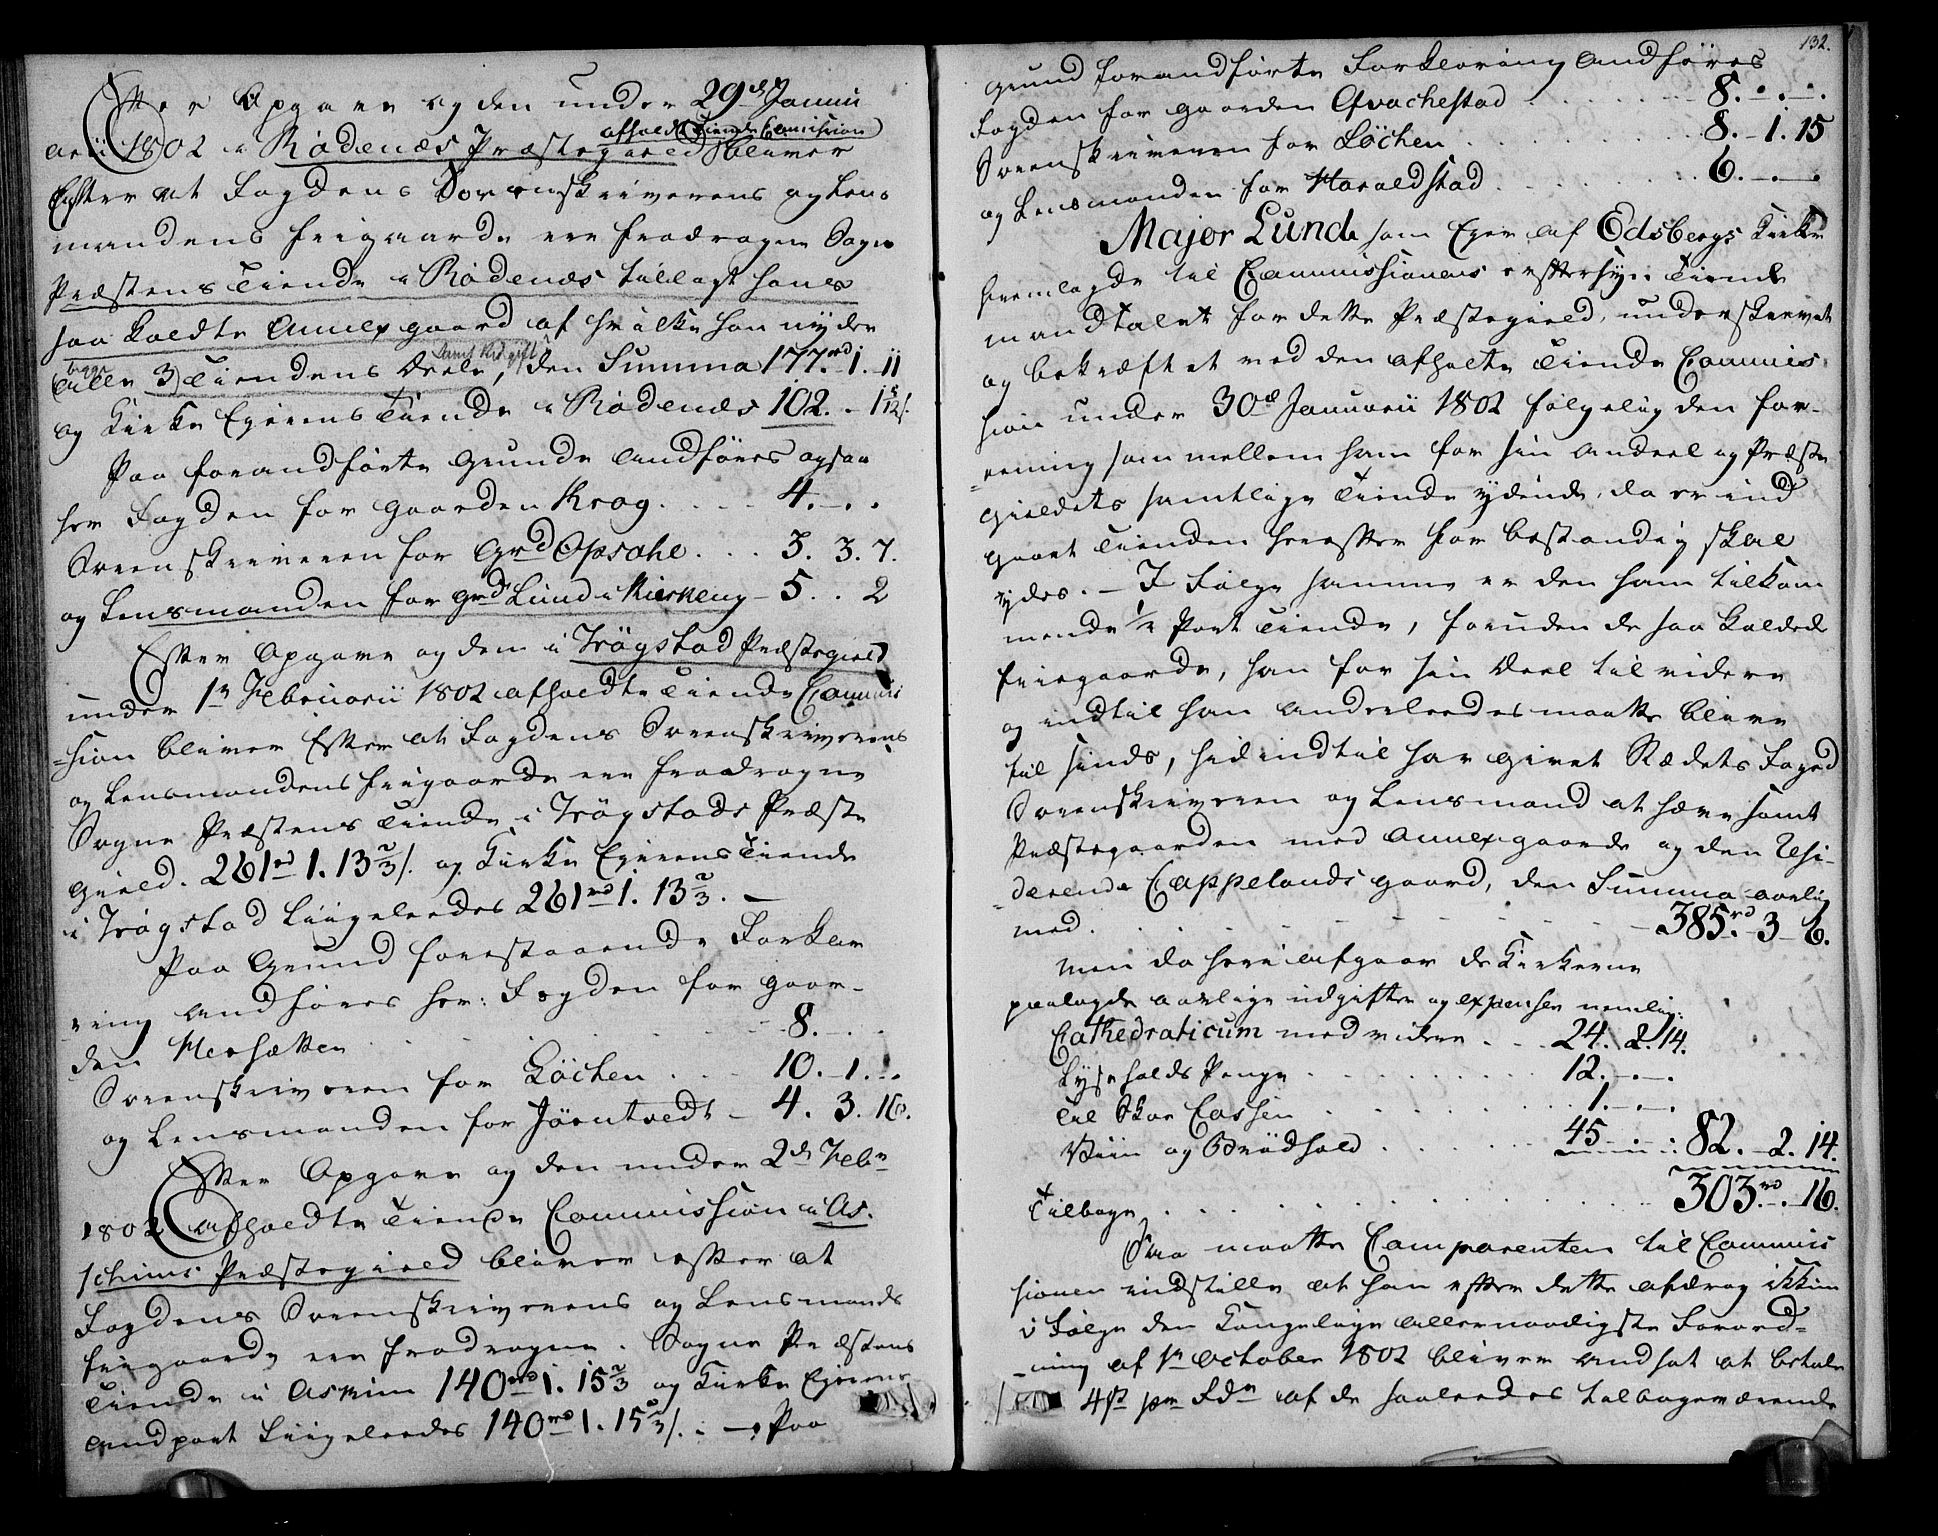 Efter Opgave og den under 29de Janu
arii 1802 i Rødenæs Præstegield afholdte Tiende Commission bliver
Efter at Fogdens Sorenskriverens og Lens
mandens friegaarde ere fradragne Sogne
Præstens Tiende i Rødenæs tillagt hans
saa kaldte Annex gaard af hvilke han nyder
alle 3 Tiendens Deele, den Summa 177rd 1. 11
og Kirke Eierens Tiende i Rødenæs 102. - 1 5/12 s.
Paa foranførte Grunde andføres ogsaa
her Fogden for gaarden Krog . . . . 4. - . .
Sorenskriveren for Grd Opsahl . . . 3. 3. 7.
og Lensmanden for grd Lund i Kirkeng - 5. . 2
Efter Opgave og den i Trøgstad Præstegield
under 1te Februarii 1802 afholdte Tiende Commis
sion bliver Efter at Fogdens Sorenskriverens
og Lensmandens friegaarde ere fradragne
Sogne Præstens Tiende i Trøgstads Præste
gield. 261rd 1. 13 2/3 s. og Kirke Eierens Tiende
i Trøgstad Liigeleedes 261rd 1. 13 2/3. -
Paa Grund forestaaende Forkla
ring andføres her: Fogden for gaar-
den Hersætten . . . 8. - . .
Sorenskriveren for Löchen . . . 10. - 1. - .
og Lensmanden for Jörntvedt - 4. 3. 16.
Efter Opgave og den under 2de Febr
1802 afholdte Tiende Commission i As-
schims Præstegield bliver efter at
Fogdens Sorenskriverens og Lensmands
friegaarde ere fradragne. Sogne Præstens
Tiende i Askim 140rd 1. 15 2/3 og Kirke Eierens
andpart Liigeleedes 140rd 1. 15 2/3 s. - Paa
132.
grund foranførte Forklaring andføres
Fogden for gaarden Qvachestad . . . 8. - . - .
Sorenskriveren for Löchen . . . 8. - 1. 15
og Lensmanden for Haraldstad . . . 6. - . - .
Major Lund som Eier af Edsbergs Kirke
fremlagde til Commissionens eftersyn Tiende
mandtalet for dette Præstegield, underskrevet
og bekræftet ved den afholte Tiende Commis
sion under 30te Januarii 1802 følgelig den for-
ening som mellem ham for sin andeel og Præste
gieldets samtlige Tiende ydende, da er ind
gaaet Tienden herefter for bestandig skal
ydes. - I Følge samme er den ham tilkom
mende 1/2 Part Tiende, foruden de saa kaldede
friegaarde, han for sin Deel til videre
og indtil han anderleedes maatte blive
til sinds, hid indtil har givet Rædets Foged
Sorenskriveren og Lensmand at hæve samt
Præstegaarden med Annex gaarde og den Resi-
derende Cappelands gaard, den Summa aarlig
med . . . 385.rd - 3 - 6.
men da heri afgaar de Kirkerne
paalagde aarlige udgifter og expenser nemlig:
Cathedraticum med videre . . . 24. 2. 14.
Lyseholds Penge . . . 12. - . - .
Til Skoe Cassen . . . 1. - . - .
Viin og Brödhold . . . 45 - . - . 82. - 2. 14.
Tilbage . . . 303.rd - . 16.
Saa maatte Comparenten til Commis
sionen indstille at han efter dette afdrag ikkun
i Følge den Kongelige allernaadigste Forord-
ning af 1te October 1802 bliver andsat at betale
4 s. pr Rdr af de saaleedes tilbageværende